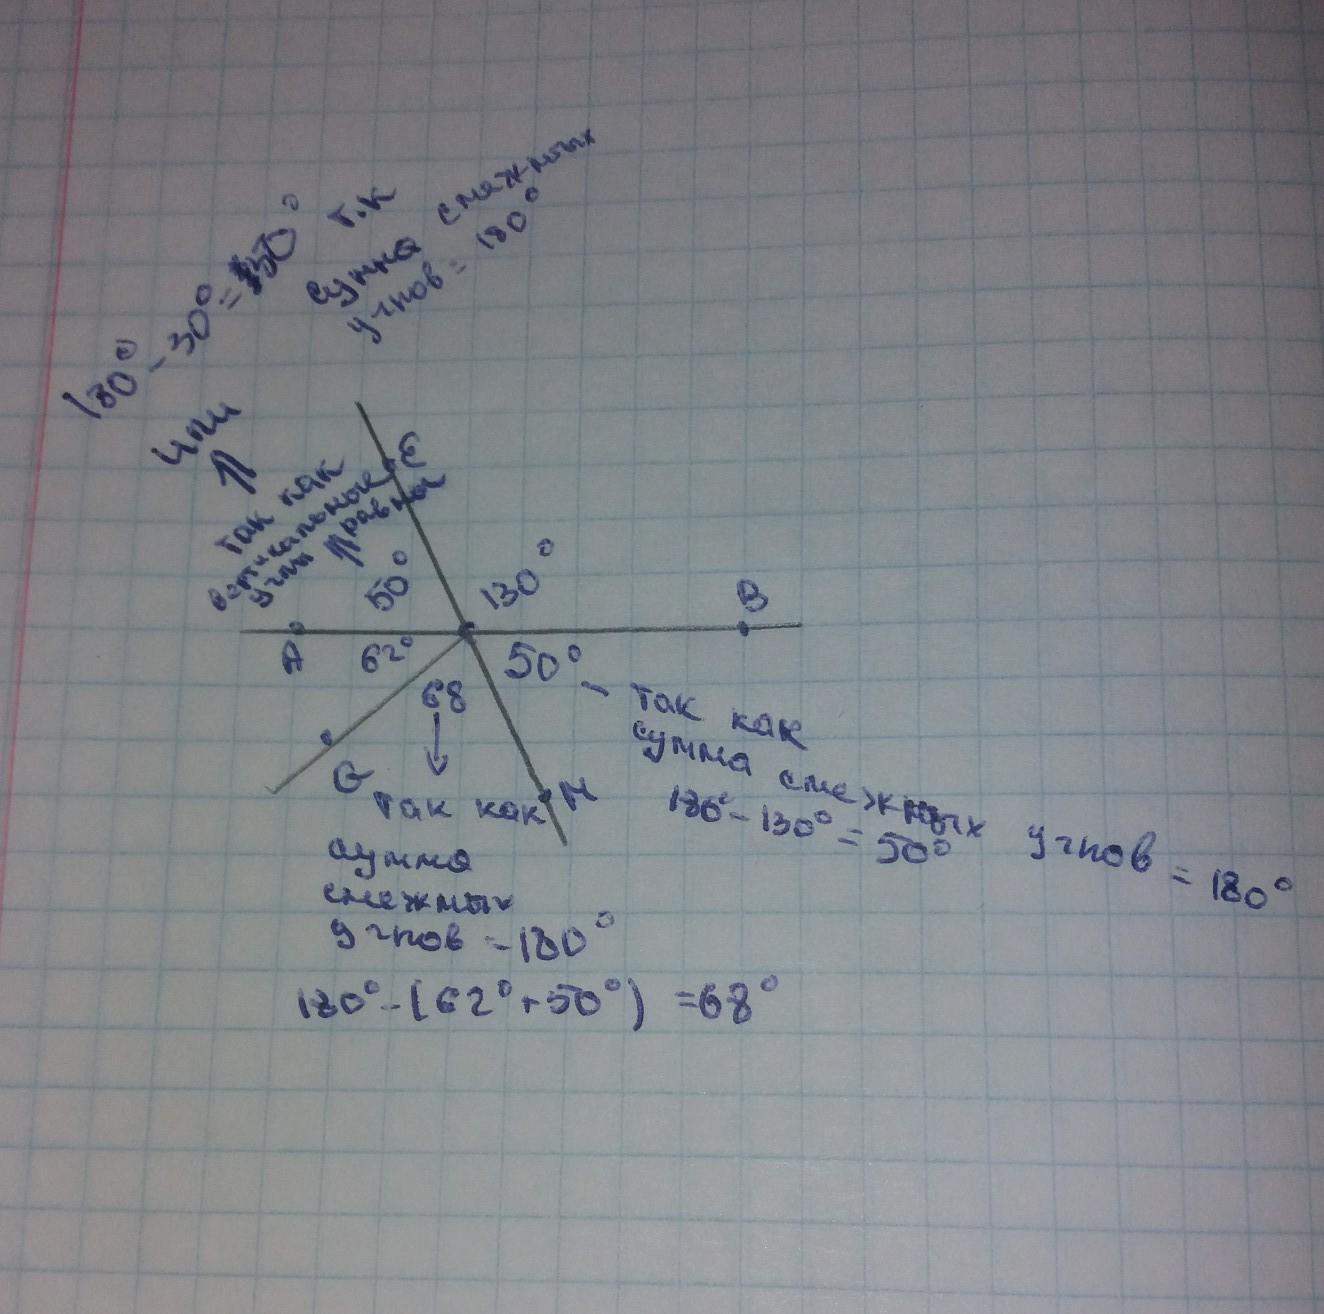 180° - 30° = 50° т.к
сумма смежных
углов = 180°
или
так как
вертикальные
углы равны
E
50°
130°
B
A
62°
50° - так как
сумма смежных углов = 180°
180° - 130° = 50°
68
G
M
так как
сумма
смежных
углов = 180°
180° - (62° + 50°) = 68°